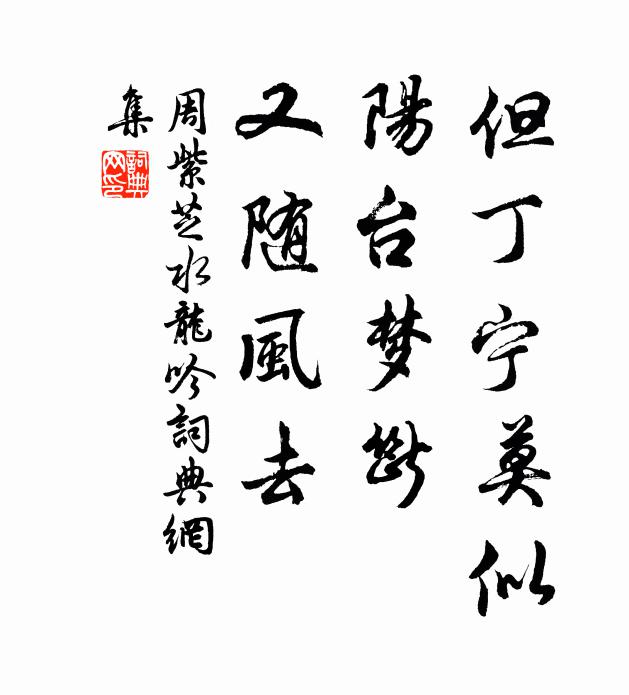 但丁宁莫似
陽台梦断
又随風去
周紫芝水龍吟詞典網
集
詞典网印